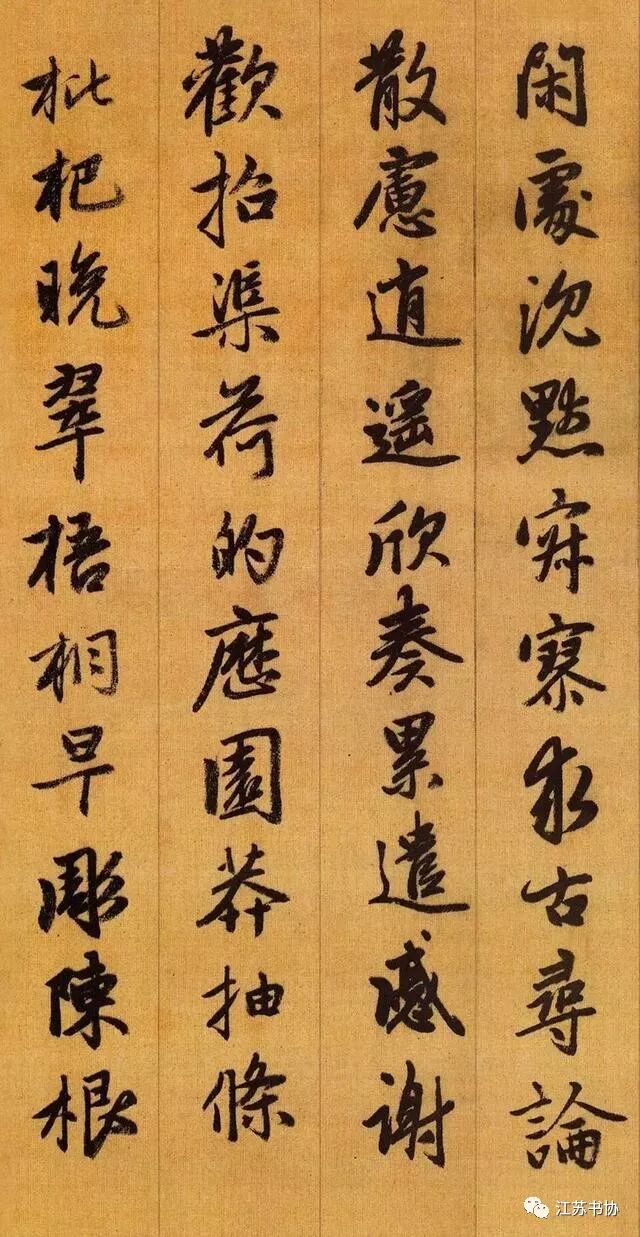 閑處沉默寂寥求古尋論
散慮逍遥欣奏累遣慼谢
歡招渠荷的歷園莽抽條
枇杷晚翠梧桐早彫陳根
江苏书协